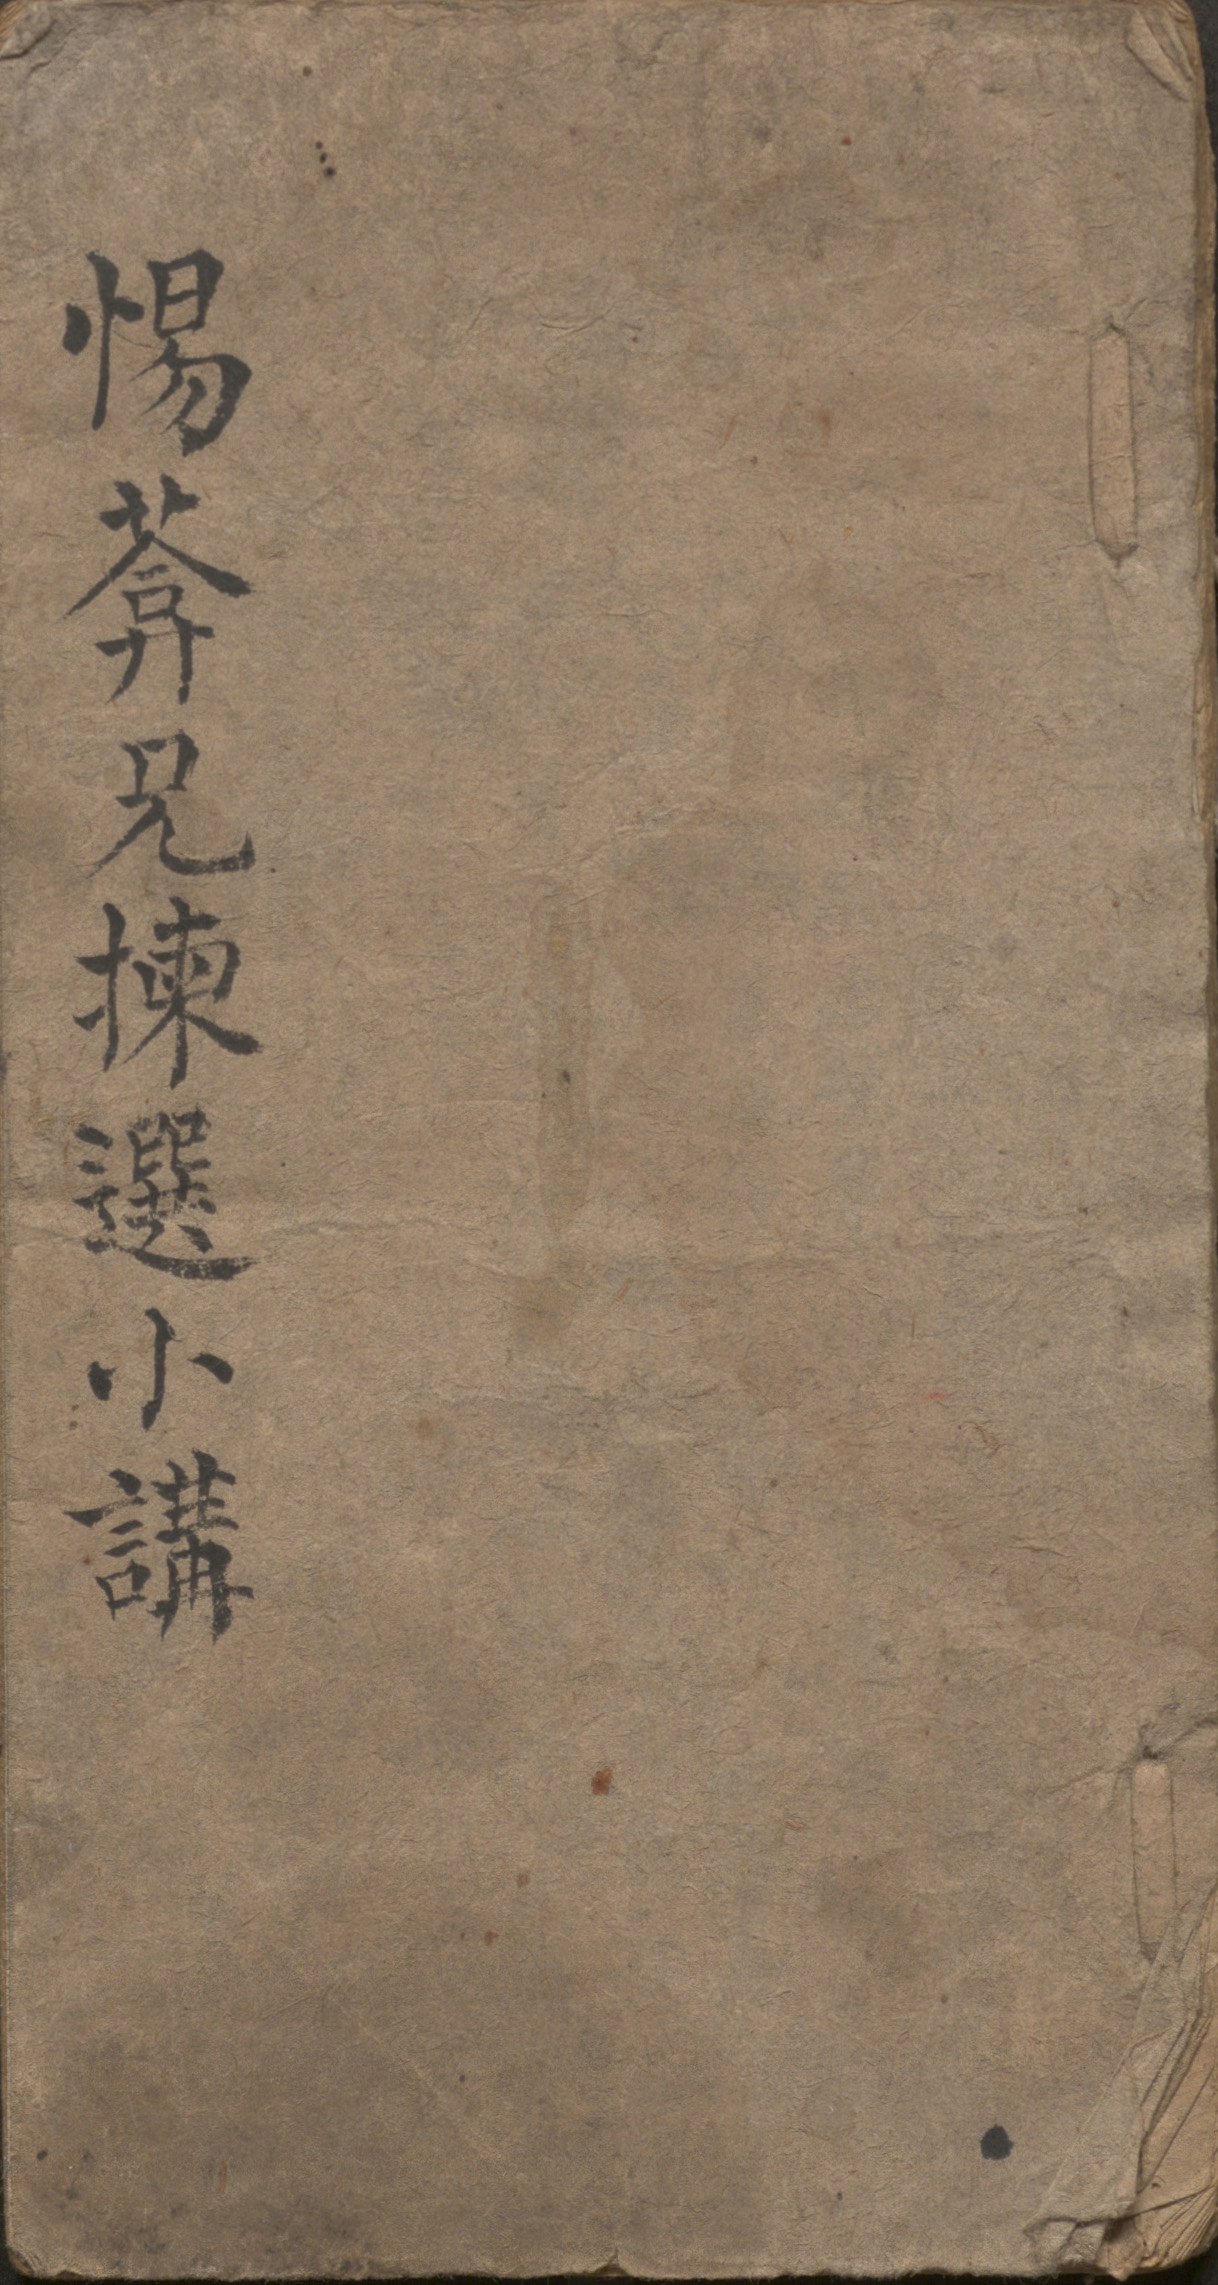 惕葊兄揀選小講